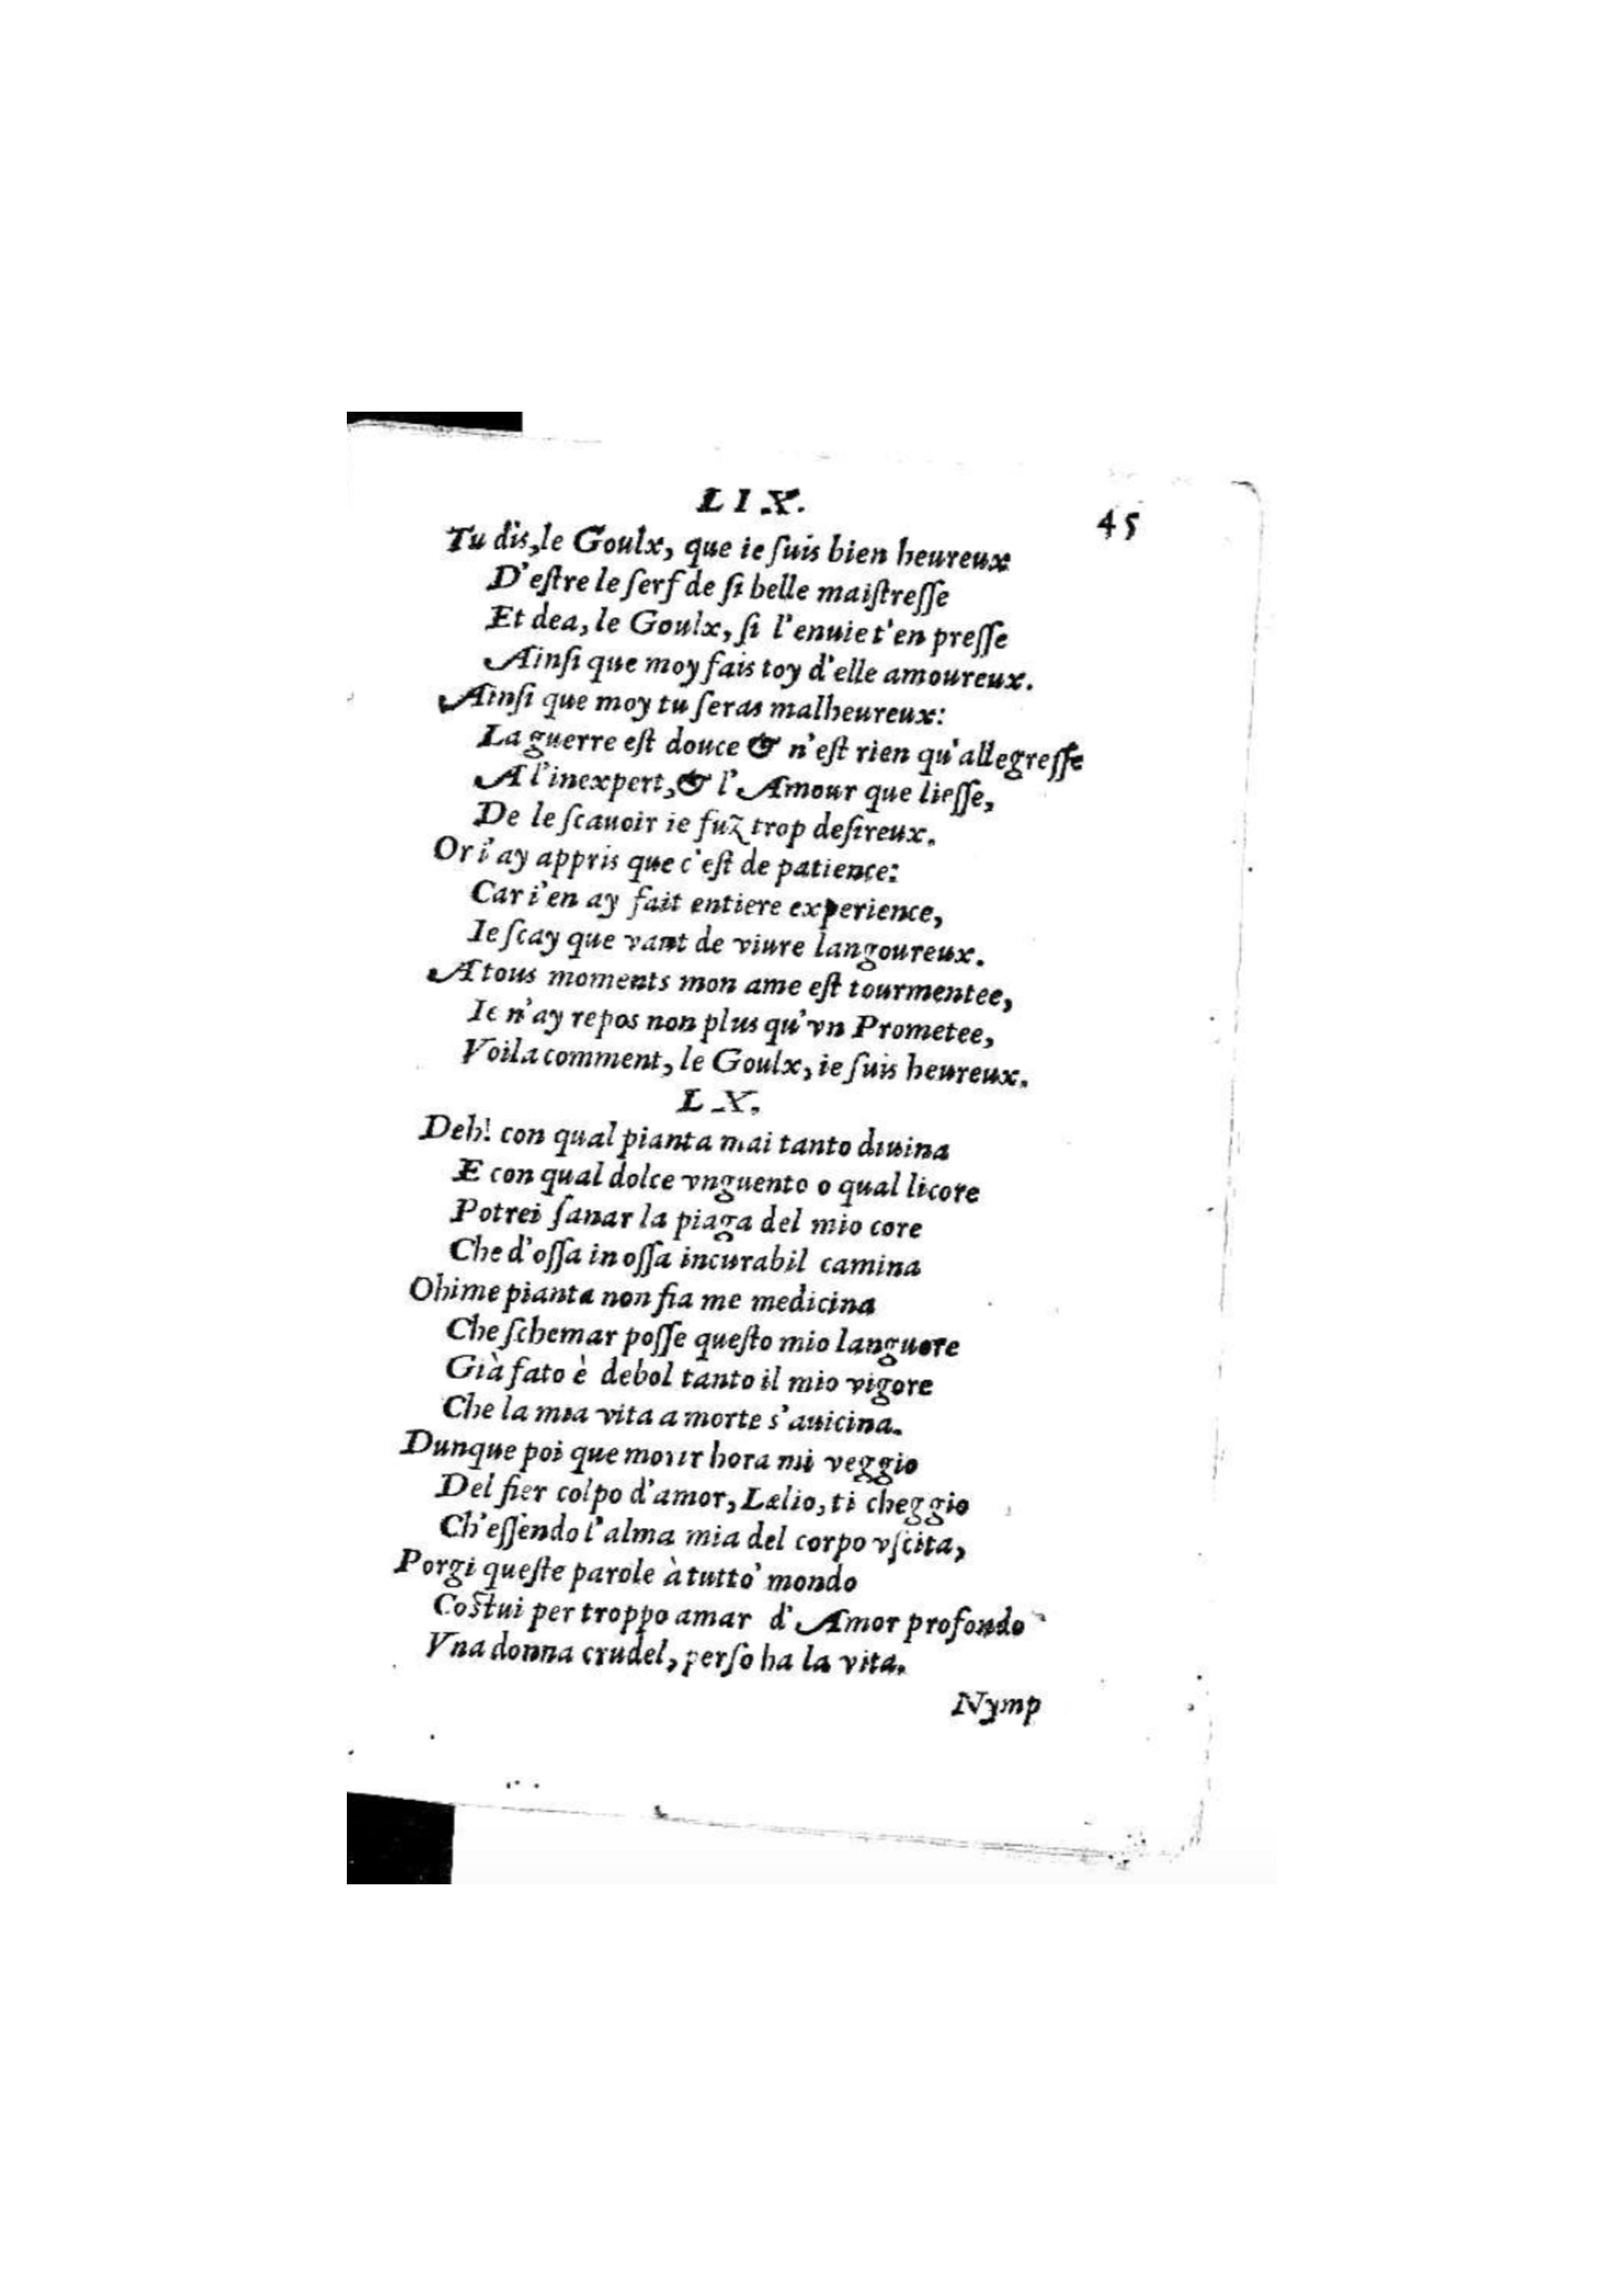 LIX.
45
Tu dis, le Goulx, que ie ſuis bien heureux
D'eſtre le ſerf de ſi belle maiſtreſſe
Et dea, le Goulx, ſi l'enuie t'en preſſe
Ainſi que moy fais toy d'elle amoureux.
Ainſi que moy tu ſeras malheureux:
La guerre eſt douce & n'eſt rien qu'allegreſſe
A l'inexpert, & l'Amour que lieſſe,
De le ſcauoir ie fuz trop deſireux.
Or i'ay appris que c'eſt de patience:
Car i'en ay fait entiere experience,
Ie ſcay que vant de viure langoureux.
A tous moments mon ame eſt tourmentee,
Ie n'ay repos non plus qu'vn Prometee,
Voila comment, le Goulx, ie ſuis heureux.
LX.
Deh! con qual pianta mai tanto diuina
E con qual dolce vnguento o qual licore
Potrei ſanar la piaga del mio core
Che d'oſſa in oſſa incurabil camina
Ohime pianta non fia me medicina
Che ſchemar poſſe queſto mio languore
Già fato è debol tanto il mio vigore
Che la mia vita a morte s'auicina.
Dunque poi que morir hora mi veggio
Del fier colpo d'amor, Lælio, ti cheggio
Ch'eſſendo l'alma mia del corpo vſcita,
Porgi queſte parole à tutto' mondo
Coſtui per troppo amar d'Amor profondo
Vna donna crudel, perſo ha la vita.
Nymp